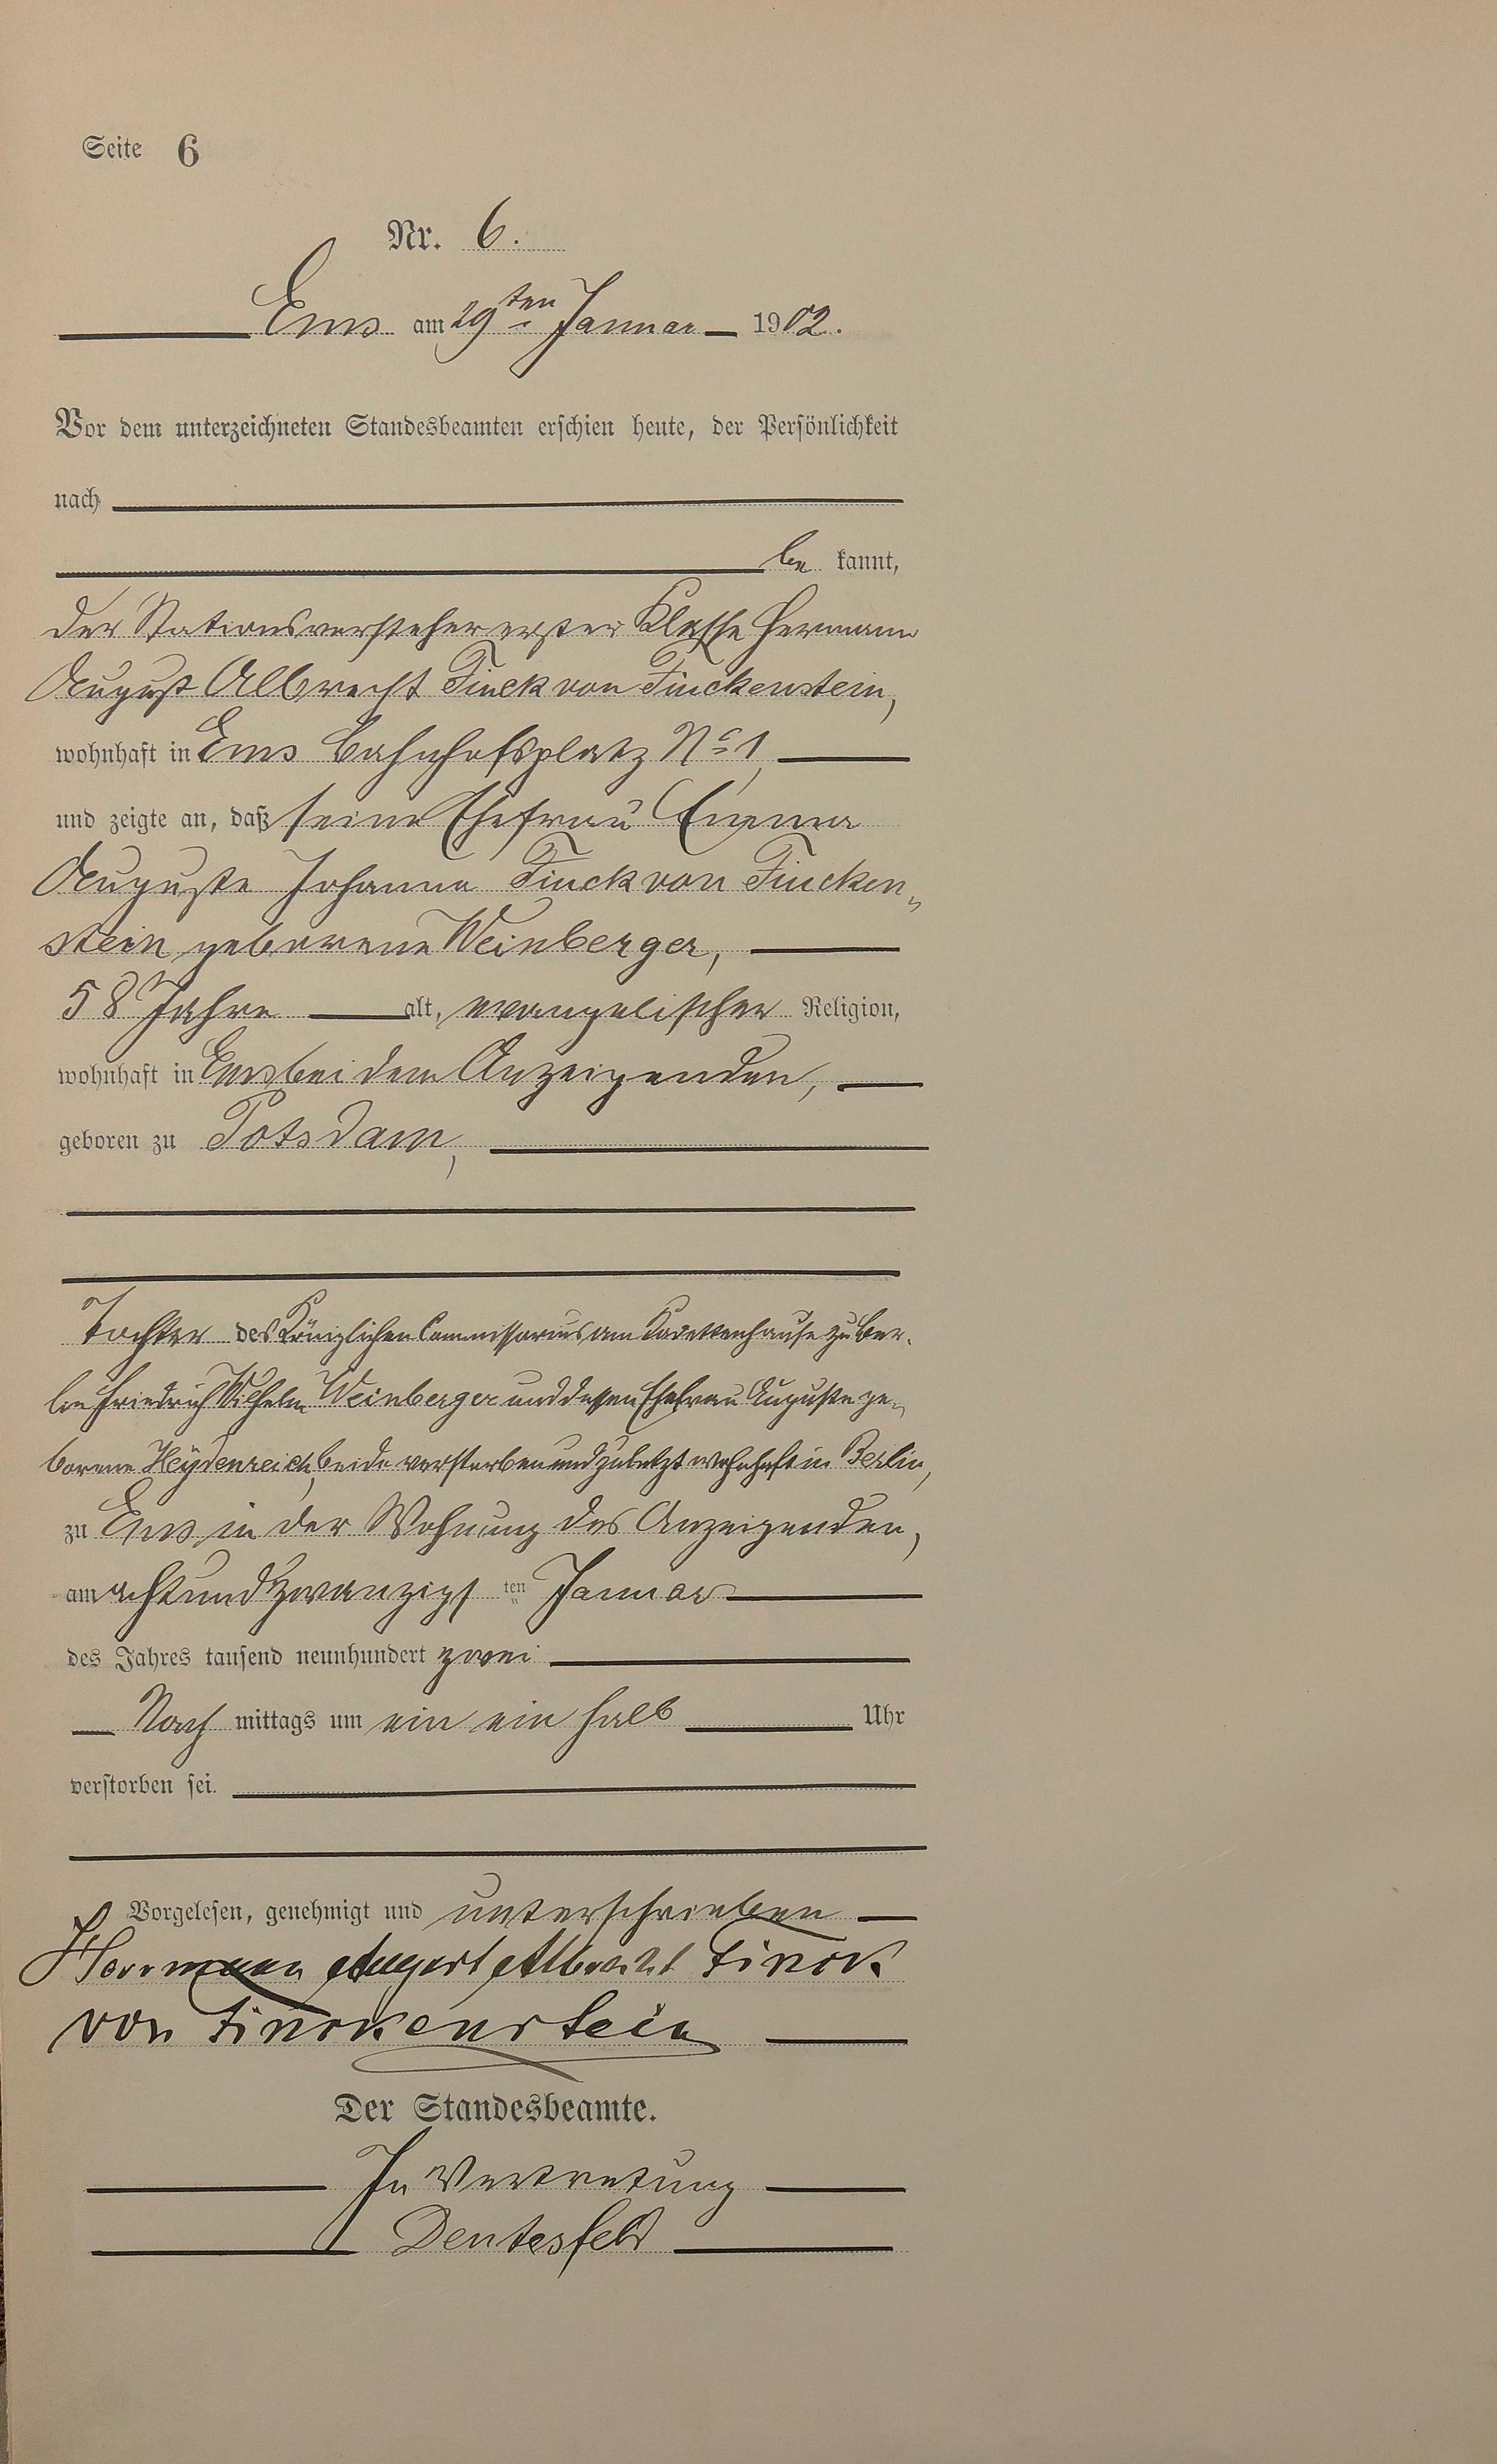 Seite 6
Nr. 6.
Ems am 29ten Januar 1902.
Vor dem unterzeichneten Standesbeamten erschien heute, der Persönlichkeit
nach
be kannt,
der Stationsvorsteher erster Klasse Hermann
August Albrecht Finck von Finckenstein,
wohnhaft in Ems Bahnhofsplatz No 1,
und zeigte an, daß seine Ehefrau Emma
Auguste Johanna Finck von Fincken„
stein geborene Weinberger,
58 Jahre alt, evangelischer Religion,
wohnhaft in Ems bei dem Anzeigenden,
geboren zu Potsdam,
Tochter des Königlichen Commissarius am Kadettenhause zu Ber-
lin Friedrich Wilhelm Weinberger und dessen Ehefrau Auguste ge„
borene Heydenreich, beide verstorben und zuletzt wohnhaft in Berlin,
zu Ems in der Wohnung des Anzeigenden,
am achtundzwanzigsten Januar
des Jahres tausend neunhundert zwei
Nach mittags um ein ein halb Uhr
verstorben sei.
Vorgelesen, genehmigt und unterschrieben
Herrmann August Albrecht Finck
von Finckenstein
Der Standesbeamte.
In Vertretung
Dentesfeld